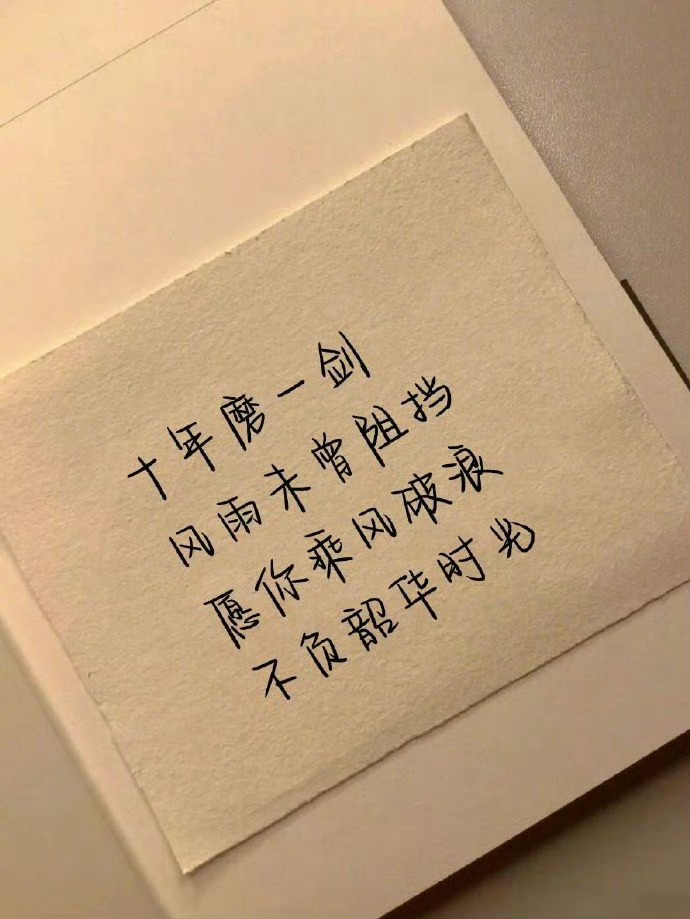 十年磨一剑
风雨未曾阻挡
愿你乘风破浪
不负韶华时光